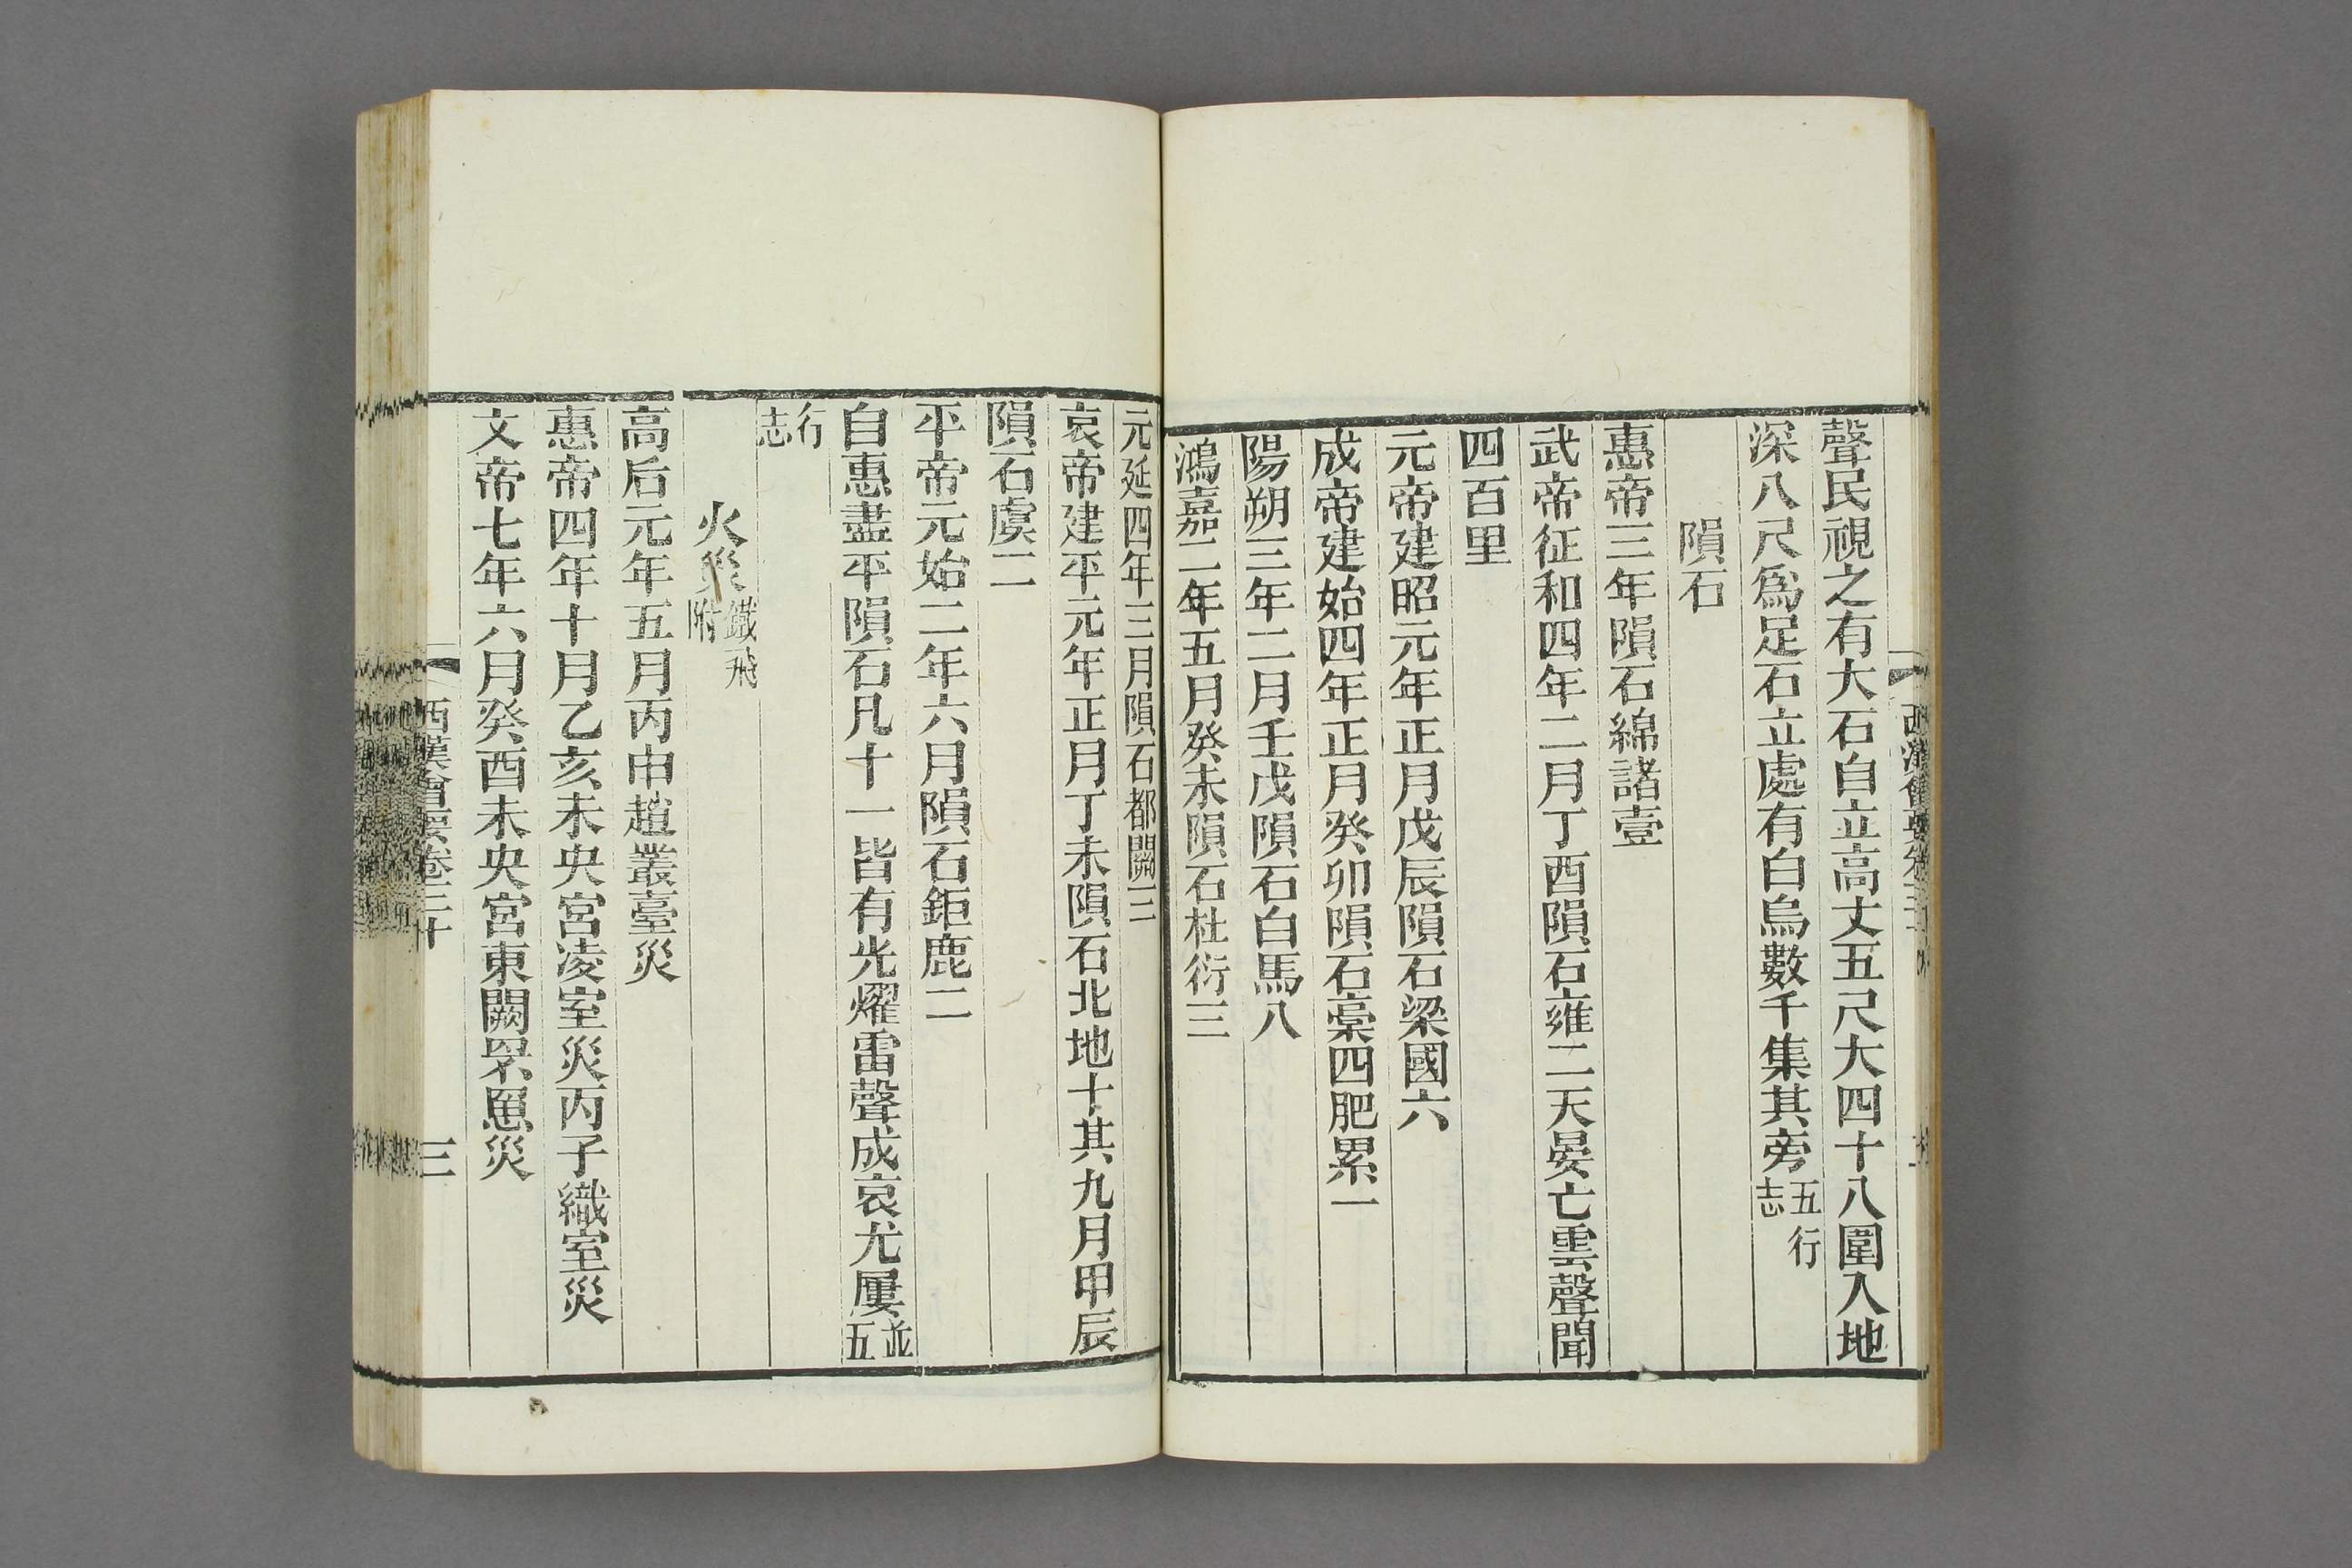 聲民視之有大石自立高丈五尺大四十八圍入地
深八尺爲足石立處有白烏數千集其旁五行志
隕石
惠帝三年隕石綿諸壹
武帝征和四年二月丁酉隕石雍二天晏亡雲聲聞
四百里
元帝建昭元年正月戊辰隕石梁國六
成帝建始四年正月癸卯隕石槀四肥累一
陽朔三年二月壬戌隕石白馬八
鴻嘉二年五月癸未隕石杜衍三
元延四年三月隕石都關二
哀帝建平元年正月丁未隕石北地十其九月甲辰
隕石虞二
平帝元始二年六月隕石鉅鹿二
自惠盡平隕石凡十一皆有光燿雷聲成哀尤屢並五
行志
火災鐵飛附
高后元年五月丙申趙叢臺災
惠帝四年十月乙亥未央宮凌室災丙子織室災
文帝七年六月癸酉未央宮東闕罘罳災
西漢會要卷三十
三